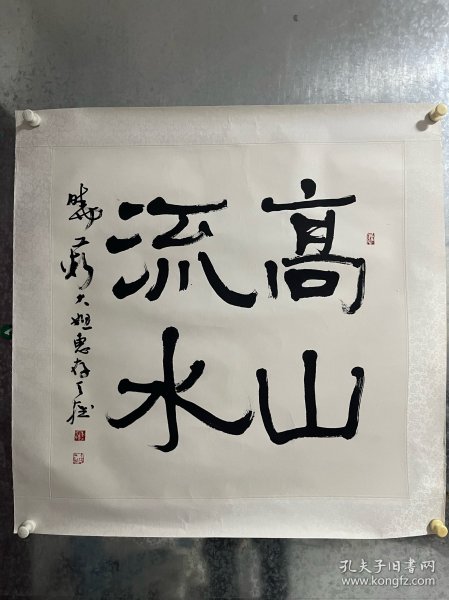 高山
流水
大姐惠存
孔夫子旧书网
www.kongfz.com